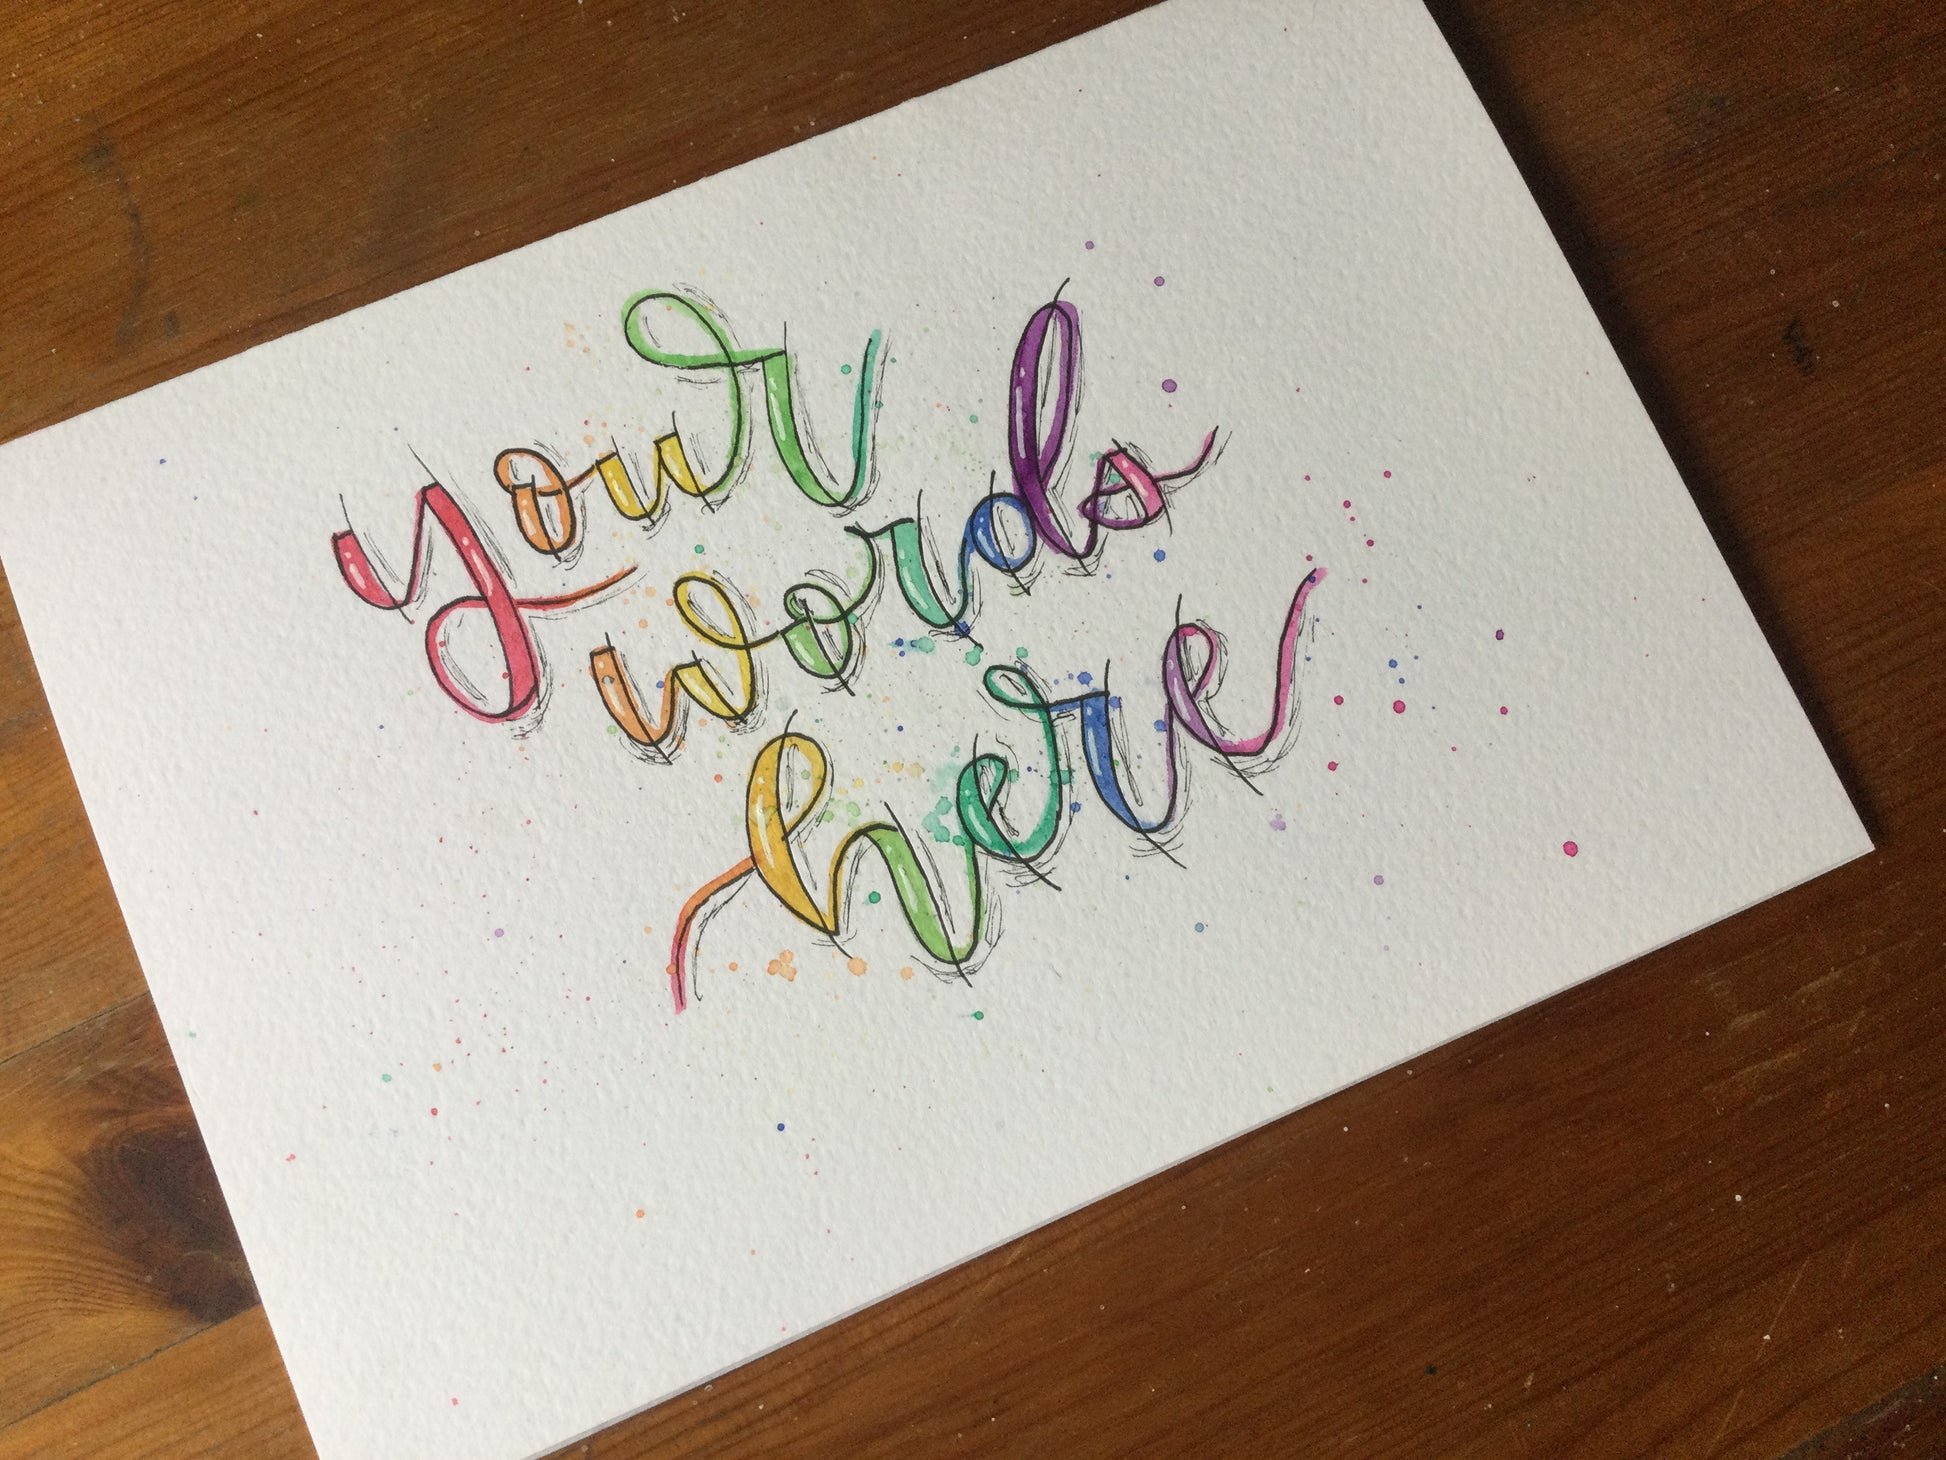 your
words
here